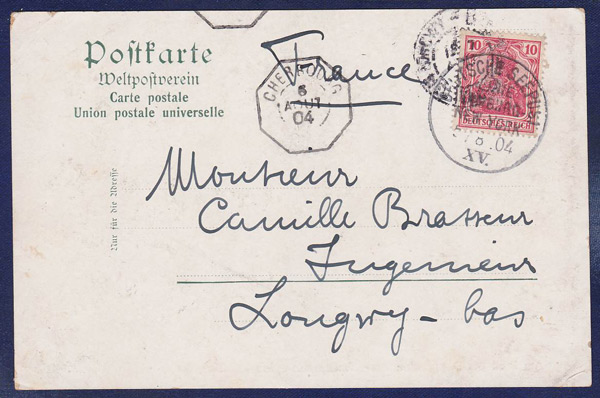 Postkarte
Weltpostverein
Carte postale
Union postale universelle
Nur für die Adresse
France
CHERBOURG
6
AOUT
04
10 10
DEUTSCHES REICH
DEUTSCHE SEEPOST
HAMBURG
NEW YORK
5 8 .04
XV.
LONGWY - BAS
Monsieur
Camille Brasseur
Ingenieur
Longwy - bas